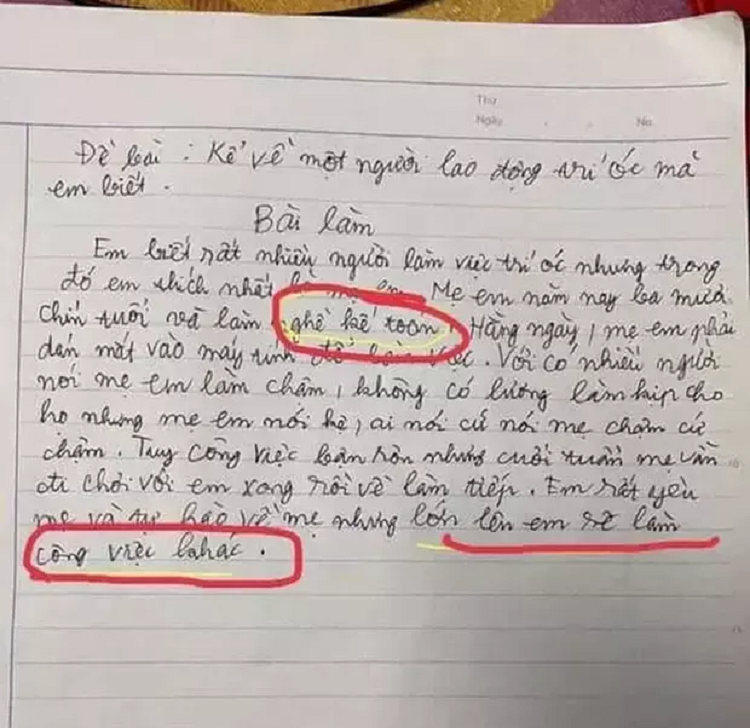 Thứ
Ngày . . No.
Đề bài : Kể về một người lao động trí óc mà
em biết .
Bài làm
Em biết rất nhiều người làm việc trí óc nhưng trong
đó em thích nhất là mẹ em. Mẹ em năm nay ba mươi
chín tuổi và làm nghề kế toán. Hằng ngày, mẹ em phải
dán mắt vào máy tính để làm việc. Với có nhiều người
nói mẹ em làm chậm, không có lương làm kịp cho
họ nhưng mẹ em nói kệ, ai nói cứ nói mẹ chậm cứ
chậm. Tuy công việc bận rộn nhưng cuối tuần mẹ vẫn
đi chơi với em xong rồi về làm tiếp. Em rất yêu
mẹ và tự hào về mẹ nhưng lớn lên em sẽ làm
công việc khác.